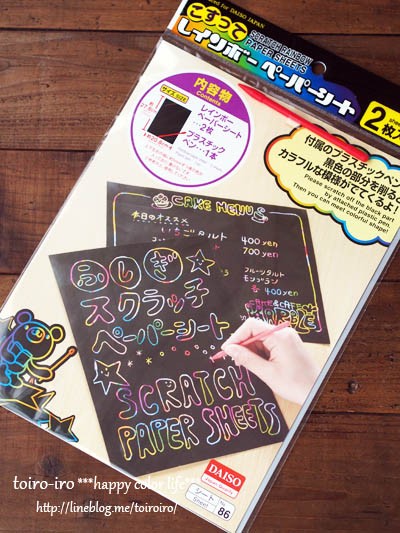 Designed for DAISO JAPAN
こすって
SCRATCH RAINBOW
PAPER SHEETS
レインボーペーパーシート
2枚入
内容物
Contents
サイズ SIZE
レインボー
ペーパーシート
…2枚
プラスチック
ペン…1本
付属のプラスチックペンで
黒色の部分を削ると
カラフルな模様がでてくるよ!
Please scratch off the black part
by attached plastic pen.
Then you can meet colorful shape!
CAKE MENUS
本日のオススメ
いちごタルト
400yen
700yen
フルーツタルト
モンブラン
各 400yen
CAKE&CAFE
MARBLE
ふしぎ
スクラッチ
ペーパーシート
SCRATCH
PAPER SHEETS
DAISO
シート
Sheet
No.
86
toiro-iro ***happy color life***
http://lineblog.me/toiroiro/